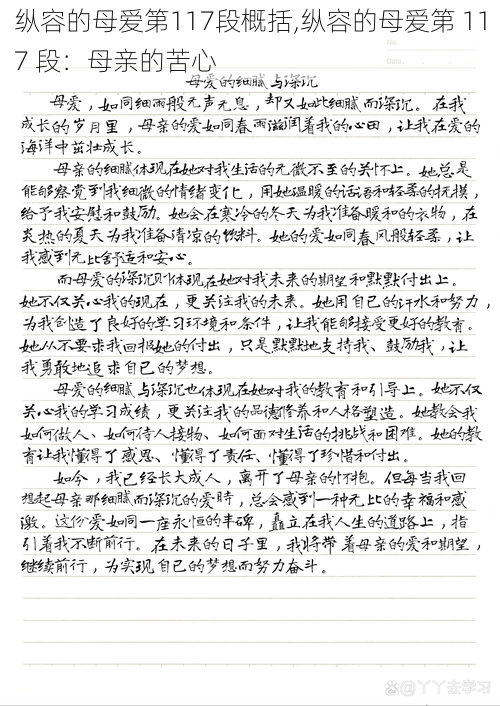 纵容的母爱第117段概括,纵容的母爱第 11
7 段：母亲的苦心
No.
Date.
母爱的细腻与深沉
母爱，如同细雨般无声无息，却又如此细腻而深沉。在我
成长的岁月里，母亲的爱如同春雨滋润着我的心田，让我在爱的
海洋中茁壮成长。
母亲的细腻体现在她对我生活的无微不至的关怀上。她总是
能够察觉到我细微的情绪变化，用她温暖的话语和轻柔的抚摸，
给予我安慰和鼓励。她会在寒冷的冬天为我准备暖和的衣物，在
炎热的夏天为我准备清凉的饮料。她的爱如同春风般轻柔，让
我感到无比舒适和安心。
而母爱的深沉则体现在她对我未来的期望和默默付出上。
她不仅关心我的现在，更关注我的未来。她用自己的汗水和努力，
为我创造了良好的学习环境和条件，让我能够接受更好的教育。
她从不要求我回报她的付出，只是默默地支持我、鼓励我，让
我勇敢地追求自己的梦想。
母爱的细腻与深沉也体现在她对我的教育和引导上。她不仅
关心我的学习成绩，更关注我的品德修养和人格塑造。她教会我
如何做人、如何待人接物、如何面对生活的挑战和困难。她的教
育让我懂得了感恩、懂得了责任、懂得了珍惜和付出。
如今，我已经长大成人，离开了母亲的怀抱。但每当我回
想起母亲那细腻而深沉的爱时，总会感到一种无比的幸福和感
激。这份爱如同一座永恒的丰碑，矗立在我人生的道路上，指
引着我不断前行。在未来的日子里，我将带着母亲的爱和期望，
继续前行，为实现自己的梦想而努力奋斗。
@丫丫去学习